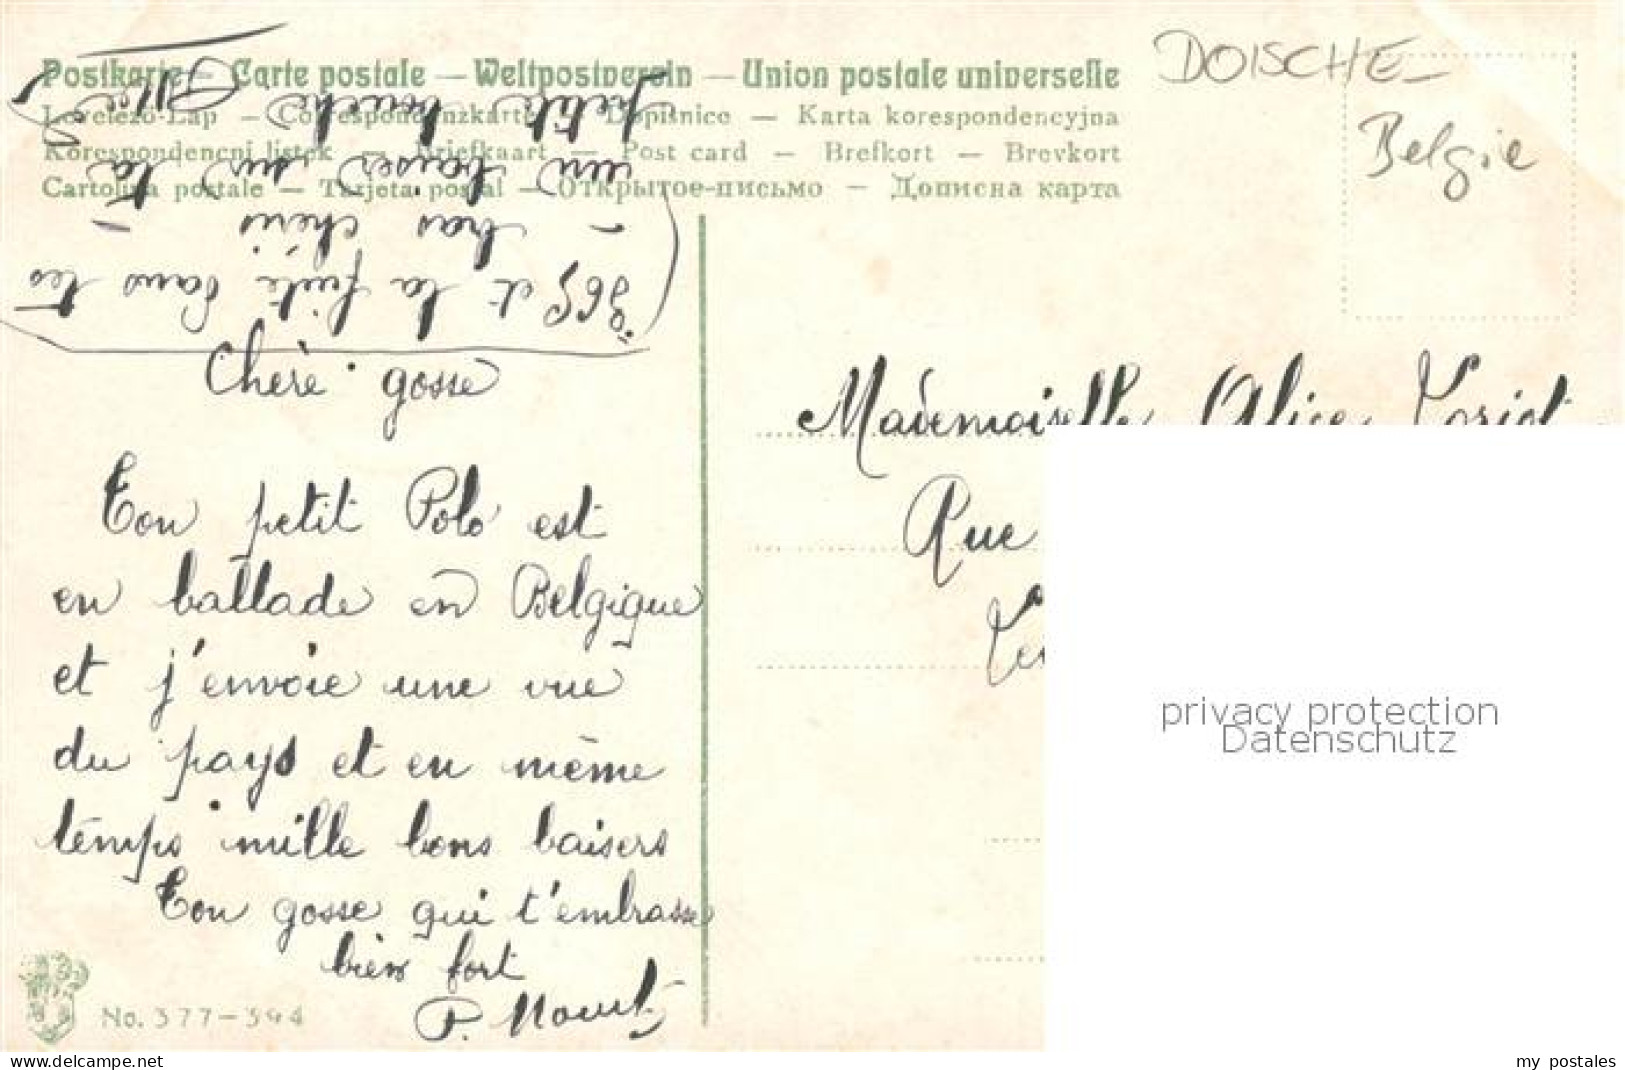 Postkarte — Carte postale — Weltpostverein — Union postale universelle
Levelező-Lap — Correspondenzkarte — Dopisnice — Karta korespondencyjna
Korespondenční lístek — Briefkaart — Post card — Brefkort — Brevkort
Cartolina postale — Tarjeta postal — Открытое-письмо — Дописна карта
DOISCHE
Belgie
et la fuite dans les
bras chéris
un baiser sur ta
petite bouche
Chère gosse
Ton petit Polo est
en ballade en Belgique
et j'envoie une vue
du pays et en même
temps mille bons baisers
Ton gosse qui t'embrasse
bien fort
P.
No. 377-394
Mademoiselle Alice Loriot
Rue
privacy protection
Datenschutz
my postales